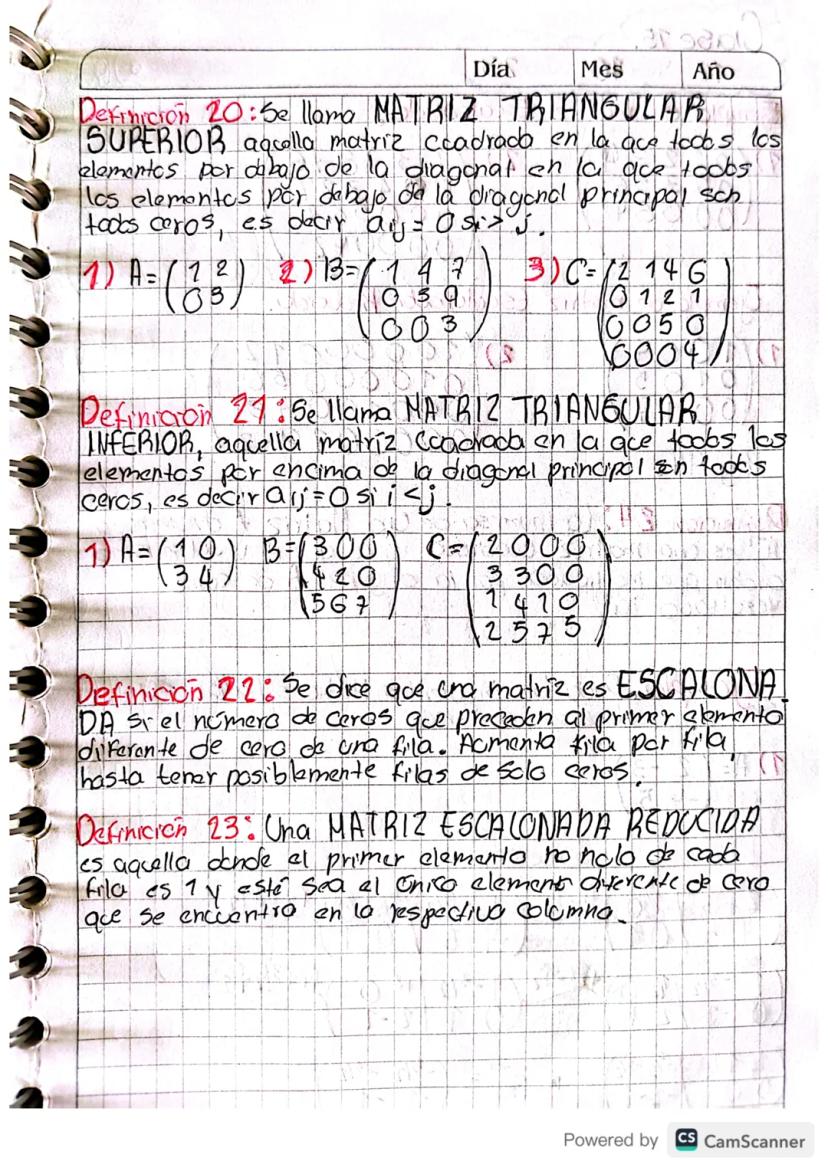 Día Mes Año
Definición 20: Se llama MATRIZ TRIANGULAR
SUPERIOR aquella matriz cuadrada en la que todos los
elementos por dabajo de la diagonal en la que todos
los elementos por debajo de la diagonal principal son
todos ceros, es decir aij = 0 si > j.
1) A = ( 1 2 2) B = ( 1 4 7 3) C = ( 2 1 4 6
0 3 ) 0 5 9 0 1 2 1
0 0 3 ) 0 0 5 0
0 0 0 4 )
Definición 21: Se llama MATRIZ TRIANGULAR
INFERIOR, aquella matriz cuadrada en la que todos los
elementos por encima de la diagonal principal son todos
ceros, es decir aij = 0 si i < j.
1) A = ( 1 0 B = ( 3 0 0 C = ( 2 0 0 0
3 4 ) 4 2 0 3 3 0 0
5 6 7 ) 1 4 1 0
2 5 7 5 )
Definición 22: Se dice que una matriz es ESCALONA
DA si el número de ceros que preceden al primer elemento
diferente de cero de una fila. Aumenta fila por fila,
hasta tener posiblemente filas de solo ceros.
Definición 23: Una MATRIZ ESCALONADA REDUCIDA
es aquella donde el primer elemento no nulo de cada
fila es 1 y esté sea el único elemento diferente de cero
que se encuentra en la respectiva columna.
Powered by CS CamScanner